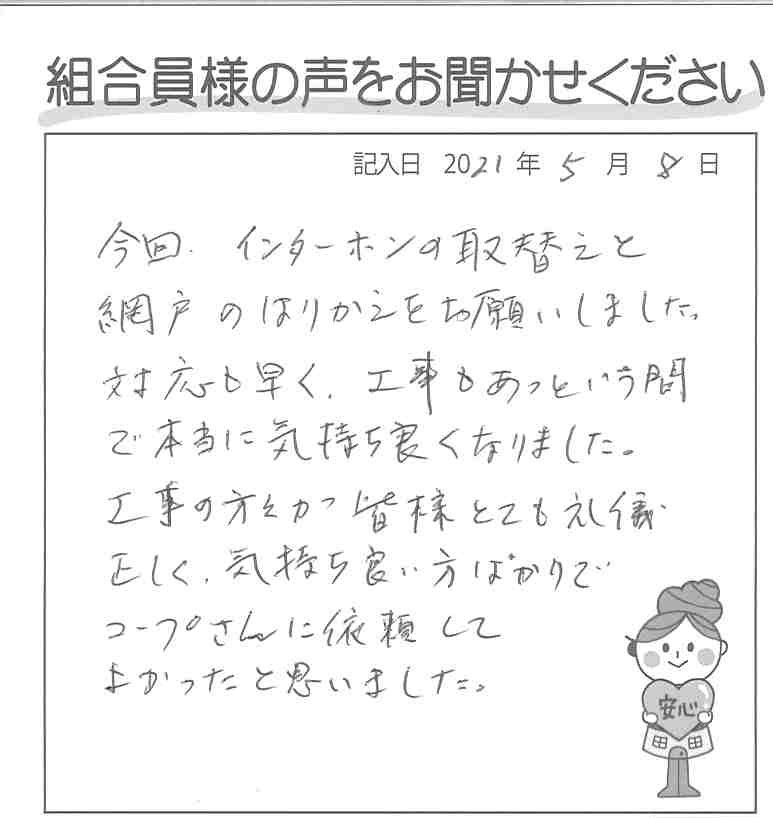 組合員様の声をお聞かせください
記入日 2021年 5月 8日
今回、インターホンの取替えと
網戸のはりかえをお願いしました。
対応も早く、工事もあっという間
で本当に気持ち良くなりました。
工事の方々が皆様とても礼儀
正しく、気持ち良い方ばかりで
コープさんに依頼して
よかったと思いました。
安心